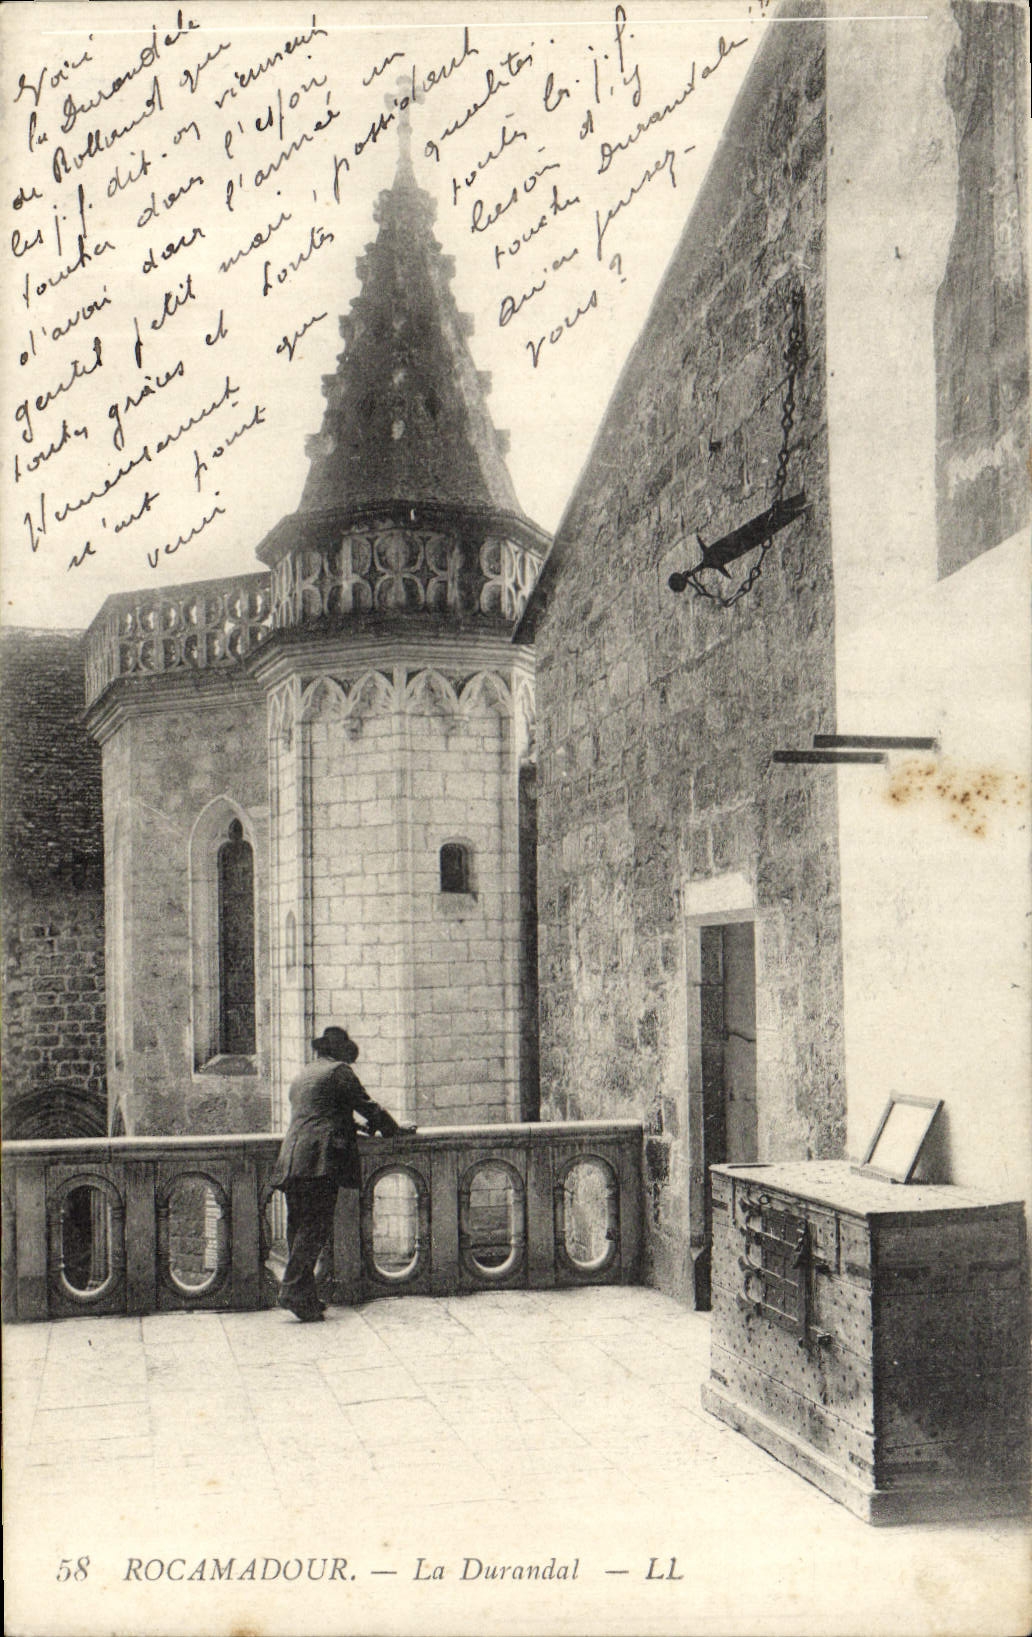 Voici
la Durandale
de Rolland que
les j. f. dit-on viennent
toucher dans l'espoir
d'avoir dans l'année un
gentil petit mari, possédant
toutes grâces et toutes qualités.
Heureusement que toutes les j. f.
n'ont point besoin d'y
venir toucher Durandale !!
Qu'en pensez-
vous ?
58 ROCAMADOUR. — La Durandal — LL